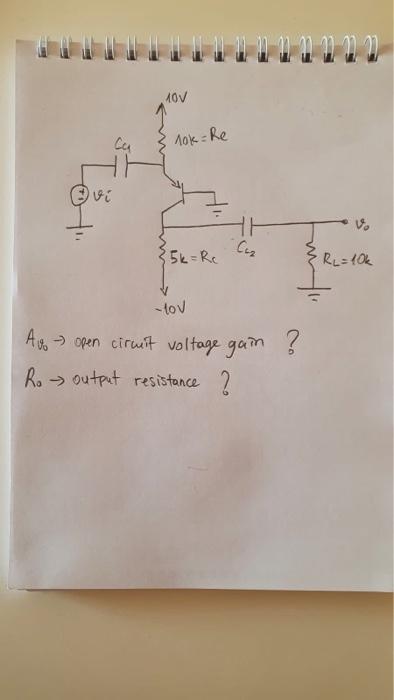 10V
10k = Re
Cc1
vi
5k = Rc
Cc2
vo
RL = 10k
-10V
Avo → open circuit voltage gain ?
Ro → output resistance ?